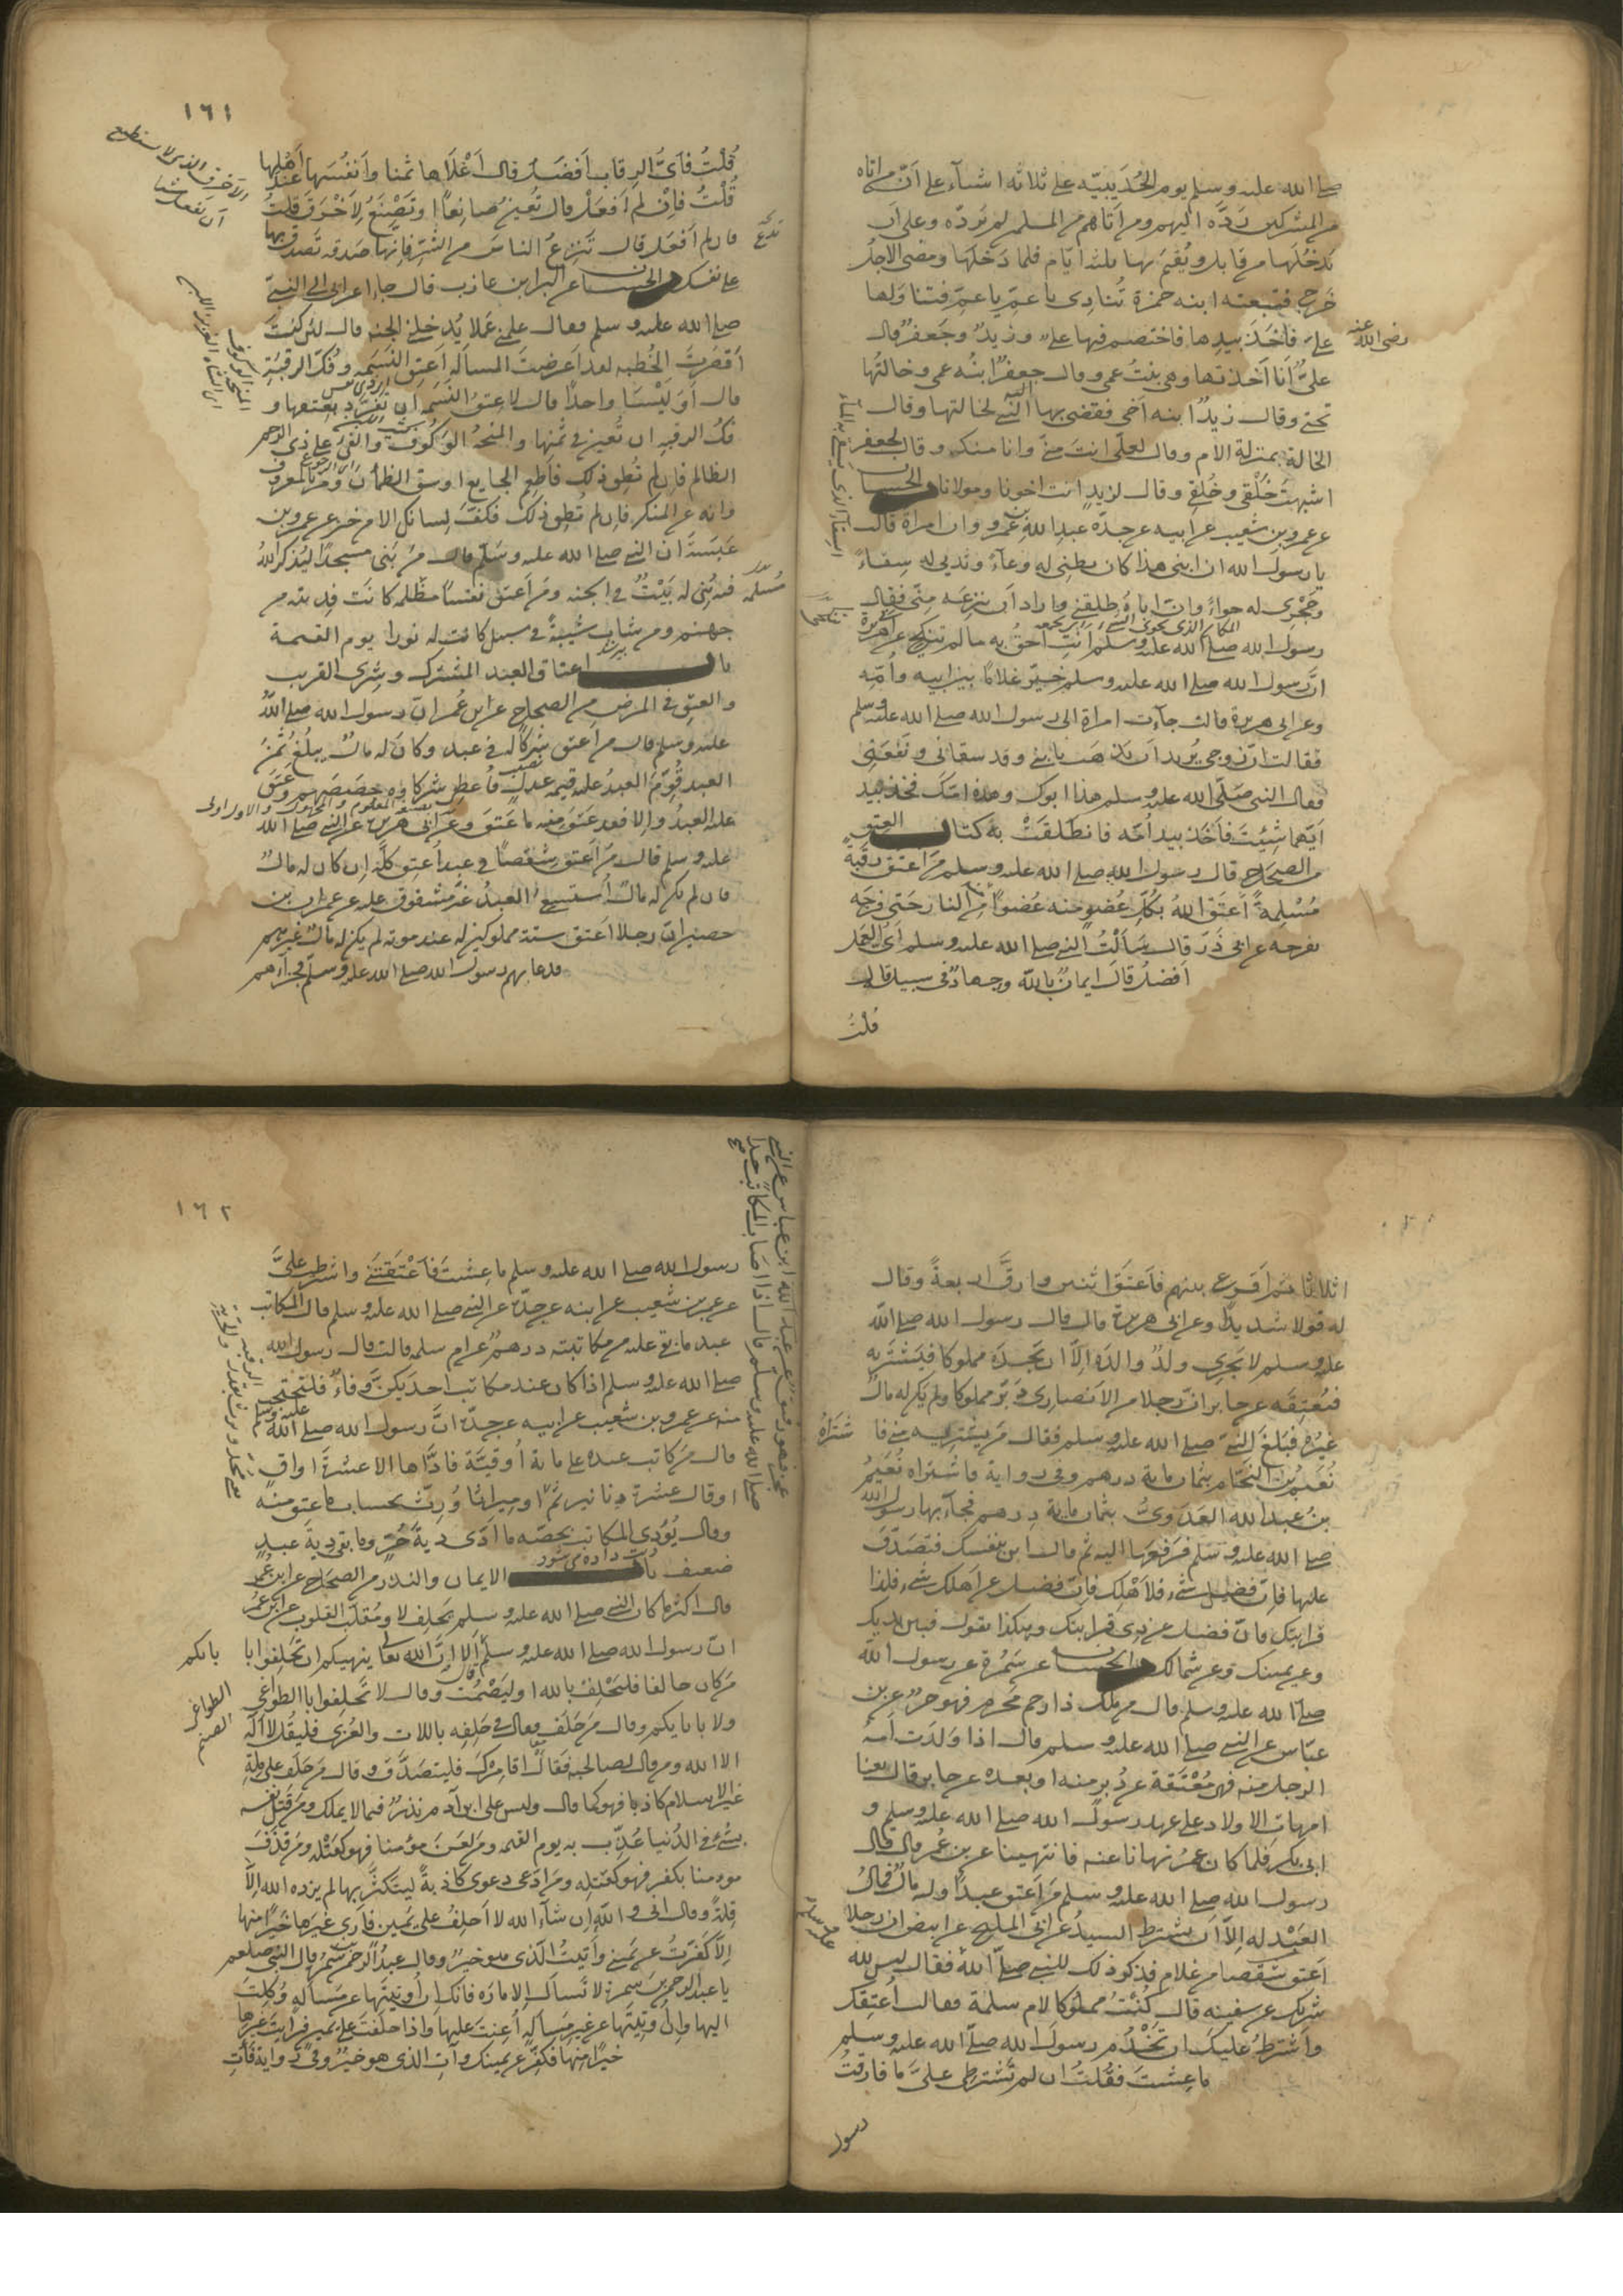 صلى الله عليه وسلم يوم الحُدَيبيّه على ثلاثه اشيآء على انّ من اتاه
من المشركين رَدَّه اليهم ومن اَتاهم من المسلمين لم يَردّه وعلى اَن
يَدخُلَها من قابلٍ ويُقيمَ بها ثلثه ايّام فلما دَخلَها ومضى الاجلُ
خَرج فتبِعته ابنه حمزة تُنادِى يا عمّ يا عمّ فتناوَلها
علىّ فاَخَذَ بيدِها فاختصم فيها علىّ وزيدٌ وجَعفرٌ قال
رضى الله عنه
علىٌّ اَنا اَخذتها وهى بنتُ عمى وقال جعفرٌ ابنُه عمى وخالتُها
تحتى وقال زيدٌ ابنه اَخى فقضى بها النبى لخالتها وقال
الخالة بمنزلة الام وقال لعلى انت منّى وانا منك وقال لجعفر
اشبهتَ خَلْقى وخُلُقى وقال لزيدٍ انت اخونا ومولانا الحسان
عن عمرو بن شعيب عن ابيه عن جدّه عبدِ الله بن عَمرو ان امراة قالت
يا رسول الله ان ابنى هذا كان بطنى له وعآءً وثديى له سِقاءً
وحَجْرى له حِواءً وانّ اباهُ طلّقنى واراد اَن ينزعَه مِنّى فقال
رسول الله صلى الله عليه وسلم اَنتِ احقُّ به ما لم تنكحى عن ابى هريرة
انّ رسول الله صلى الله عليه وسلم خيّر غلامًا بين ابيه واُمّه
وعن ابى هريرة قالت جآءت امراة الى رسول الله صلى الله عليه وسلم
فقالت انّ زوجى يُريد اَن يذهب بابنى وقد سقانى ونَفَعَنى
فقال النبى صَلّى الله عليه وسلم هذا ابوك وهذه امّك فخذ بيد
اَيّهما شِئْتَ فاَخَذ بيد اُمّه فانطلقَتْ به كتاب العتق
من الصِحَاح قال رسول الله صلى الله عليه وسلم مَن اعتق رقبةً
مُسْلِمةً اَعتَق اللهُ بكلّ عُضوٍ منه عُضوًا من النار حَتّى فرجَه
بفرجه عن ابى ذَرّ قال سَاَلْتُ النبى صلى الله عليه وسلم اَىُّ العَمل
اَفضلُ قالَ ايمانٌ بالله وجهادٌ فى سبيله قال
قُلْتُ
١٦١
قُلْتُ فاَىُّ الرقاب اَفضَلُ قال اَغْلَاها ثمنا واَنفُسَها عند اَهْلِها
قُلْتُ فاِنْ لم اَفعَلْ قال تُعينُ صانِعًا او تَصْنَعُ لِاَخْرَقَ قلتُ
فان لم اَفعَل قال تَدَعُ الناسَ من الشرّ فاِنّها صَدقه تَصدّق بها
الاخرق الذى لا يستطيع
ان يفعل شيئا
على نفسك الحسان عن البرا بن عازب قال جا اعرابى الى النبى
صلى الله عليه وسلم فقال علمنى عَملا يُدخلنى الجنه قال لئن كنتَ
اَقصَرتَ الخُطبه لقد اَعرضتَ المساَله اَعتِق النَسَمه وفُكَّ الرقبةَ
قال اَوَ لَيْسَتا واحدًا قال لا عتقُ النَسَمه اَن تفرَّد بعتقها و
فكُّ الرقبه ان تُعينَ فى ثَمنِها والمِنحهُ الوَكُوفُ والفىُ على ذى الرحم
الظالم فاِن لم تُطِق ذلك فاَطعِم الجايع واسقِ الظمآنَ وأمر بالمعروف
وانهَ عن المنكر فاِن لم تُطِق ذلك فكُفَّ لِسانك الا من خير عن عمرو بن
عَبَسَةَ ان النبى صلى الله عليه وسَلّم قال مَن بَنى مسجدًا ليُذكرَ اللهُ
فيه بُنِى له بَيْتٌ فى الجنه ومَن اَعتق نفسًا مُسْلمه كانت فديته من
جهنم ومن شاب شَيبةً فى سبيل كانت له نورا يوم القيمة
باب اعتاق العبد المشترك وشِرى القريب
والعِتق فى المرض من الصِحَاح عن ابن عُمر انّ رسول الله صلى اللهُ
عليه وسلم قال من اَعتق شِركًا له فى عبد وكان له مالٌ يبلُغ ثَمَنَ
العبد قُوّمَ العبدُ عليه قيمه عدلٍ فاُعطِى شركاوه حِصَصَهم وعَتَقَ
عليه العبدُ والا فقد عَتَق منه ما عَتَقَ وعن ابى هريرة عن النبى صلى الله
عليه وسلم قال من اَعتق شِقْصًا فى عبدٍ اُعتِق كلُّه اِن كان له مالٌ
فان لم يكن له مالٌ اُستُسعِىَ العبدُ غيرَ مشقوق عليه عن عمران بن
حصين انّ رجلا اَعتق ستة مملوكين له عند موته لم يكن له مالٌ غيرهم
فدعا بهم رسول الله صلى الله عليه وسلّم فجزّاَهم
اثلاثا ثم اَقرع بينهم فاَعتَق اثنين وارقَّ اربعةً وقال
له قولا شديدًا وعن ابى هريرة قال قال رسول الله صلى الله
عليه وسلم لا يَجزى ولدٌ والدَه اِلّا ان يَجدَه مملوكا فيَشتريَه
فيُعتِقَه عن جابر انّ رجلا من الاَنصار دَبّر مملوكا ولم يكن له مالٌ
غيرُه فبَلغَ النبىّ صلى الله عليه وسلم فقال مَن يشتريه منى فاشتَراهُ
نُعَيم بن النَحّام بثمان مايه درهم وفى رواية فاشتراه نُعَيمُ
بنُ عبد الله العَدَوىُّ بثمان ماية درهم فجآء بها رسول الله
صلى الله عليه وسلم فدَفَعها اليه ثم قال ابدأ بنفسك فتَصَدَّق
عليها فاِن فضَل شىء فلِاَهْلك فاِن فضل عن اَهلك شىء فلذى
قرابتك فانّ فضل عن ذى قرابتك وهكذا يقول فبين يديك
وعن يمينك وعن شمالك الحسان عن سَمُرة عن رسول الله
صلى الله عليه وسلم قال من ملك ذا رحم مَحْرمٍ فهو حرّ عن ابن
عبّاس عن النبى صلى الله عليه وسلم قال اذا وَلَدَت اَمةُ
الرجل منه فهى مُعْتَقة عن دُبر منه او بعده عن جابر قال بعنا
امهاتِ الاولاد على عهد رسول الله صلى الله عليه وسلم و
ابى بكر فلما كان عمرُ نهانا عنه فانتهينا عن ابن عُمر قال قال
رسول الله صلى الله عليه وسلم من اَعتق عبدًا وله مالٌ فمالُ
العَبْد له اِلّا اَن يشترط السيدُ عن ابى المليح عن ابيه ان رجلا
اَعتق شقصا من غلام فذكر ذلك للنبى صلى الله فقال ليس لله
عليه وسلم
شريك عن سفينه قال كُنْتُ مملوكا لام سلمة فقالت اُعتِقك
واَشترطُ عليك ان تَخْدُم رسول الله صلى الله عليه وسلم
ما عِشتَ فقُلتُ ان لم تشترطى علىّ ما فارقتُ
رسول
١٦٢
رسول الله صلى الله عليه وسلم ما عِشتُ فاَعْتَقَتْنى واشترطت علىَّ
عن عمرو بن شعيب عن ابيه عن جدّه عن النبى صلى الله عليه وسلم قال المكاتب
عبد ما بقى عليه من مكاتبته درهمٌ عن ام سلمه قالت قال رسول الله
صلى الله عليه وسلم اذا كان عند مكاتب احديكنّ وفاءٌ فلتحتجب
منه عن عمرو بن شعيب عن ابيه عن جدّه انَّ رسول الله صلى الله عليه وسلم
قال من كاتب عبده على ماية اُوقيّة فادّاها الا عشرةَ اواقٍ
او قال عشرة دنانير ثم
وقال يُؤدِى المكاتب بحصّه ما ادّى ديةَ حُرٍّ وما بقى ديةَ عبدٍ
ضعيف باب الايمان والنذر من الصِحَاح عن ابن عُمر
قال اكثر ما كان النبى صلى الله عليه وسلم يَحلِف لا ومُقلّب القلوب عن ابن عمر
انّ رسول الله صلى الله عليه وسلم قال اَلا اِنّ الله تعالى ينهيكم ان تَحلِفوا بابآئكم
مَن كان حالفا فليَحْلِفْ بالله او ليَصْمُت وقال لا تَحلِفوا بالطواغى
ولا بابايكم وقال مَن حَلَف فقال فى حَلِفِه باللات والعُزى فليقُل لا اله
الا الله ومن قال لصاحبه تعال اقامِرْك فليتصَدَّق وقال مَن حَلَف على مِلّةِ
غير الاسلام كاذبا فهو كما قال وليس على ابن آدم نذرٌ فيما لا يملك ومن قَتل نفسه
بشىءٍ فى الدُنيا عُذّب به يوم القيمه ومن لعَن مؤمنا فهو كقَتْله ومن قذَفَ
مومنا بكفر فهو كقَتلِه ومن ادّعى دعوى كاذبةً ليتكثَّر بها لم يزده الله اِلّا
قلةً وقال انى والله اِن شآء الله لا اَحلِفُ على يَمين فاَرى غيرَها خيرًا منها
اِلّا كَفّرتُ عن يَمينى واَتيتُ الّذى هو خيرٌ وقال عبدُ الرحمن بن سَمُرة قال النبى صلعم
يا عبد الرحمن بنَ سمرة لا تَسأَل الامارَه فانك اِن اُوتيتَها عن مَسأله وُكِلتَ
اليها واِن اُوتِيتَها عن غير مَسأله اُعِنتَ عليها واذا حلَفتَ على يَمين فراَيتَ غيرَها
خيرًا منها فكفِّر عن يمينك وآتِ الذى هو خيرٌ وفى رواية فأتِ